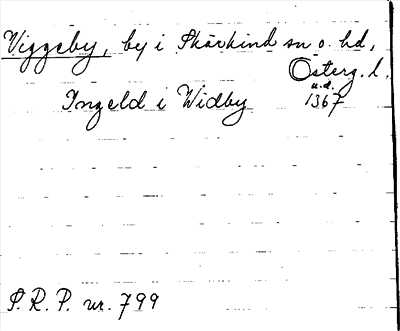 Viggeby, by i Skärkind sn o. hd,
Österg. l.
u.d.
Ingeld i Widby 1367
P.R.P. nr. 799